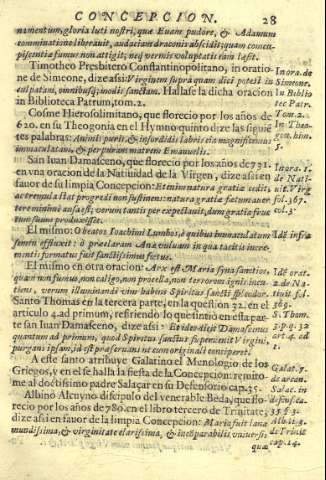 CONCEPCION. 28
numentum, gloria luti nostri, quæ Euam pudore, & Adamum
comminatione liberauit, audaciam draconis abscidit, quam concu-
piscentiæ fumus non attigit, nec vermis voluptatis eam læsit.
Timotheo Presbitero Constantinopolitano, in oratio-
ne de Simeone, dize assi: Virginem supra quam dici potest in
culpatam, omnibusq; modis sanctam. Hallase la dicha oracion
in Biblioteca Patrum, tom. 2.
Cosme Hierosolimitano, que florecio por los años de
620. en su Theogonia en el Hymno quinto dize las siguié
tes palabras: Animis puris & insordidis labris ex magnificemus
immaculatam, & perpuram matrem Emanuelis.
San Iuan Damasceno, que florecio por los años de 731.
en vna oracion de la Natiuidad de la Virgen, dize assi en
fauor de su limpia Concepcion: Etenim natura gratiæ cedit,
ac tremula stat progredi non sustinens: natura gratiæ fœtum anser
tere minimè ausa est; verum tantis per expectauit, dum gratia fruc
tum suum produxisset.
El mismo: O beatos Ioachimi Lumbos, è quibus immaculatum
semen effluxit: ò præclaram Anæ vuluam in qua tacitis incre-
mentis formatus fuit sanctissimus fœtus.
El mismo en otra oracion: Arx est Maria sygna sanctior,
quam non fumus, non caligo, non procella, non terrorum ignis incan
tieus, verum illuminandi eius habens Spiritus sancti splendor.
Santo Thomas en la tercera parte, en la question 32. en el
articulo 4. ad primum, refiriendo lo que sintio en esta par-
te san Iuan Damasceno, dize assi: Et ideo dicit Damascenus
quantum ad primum, quod Spiritus sanctus superuenit Virgini,
purgans ipsam, id est præseruans ne cum originali conciperet.
A este santo atribuye Galatino el Menologio de los
Griegos, y en el se halla la fiesta de la Concepcion: remito
me al doctissimo padre Salaçar en su Defensorio cap. 35.
Albino Alcuyno discipulo del venerable Beda, que flo-
recio por los años de 780. en el libro tercero de Trinitate,
dize assi en fauor de la limpia Concepcion: Maria fuit lana
mundissima, & virginitate clarissima, & incōparabilis vniuersi.
quæ
In ora. de
Simeone,
In Biblio
tec Patr.
Tom. 2.
In Theo-
gon. him.
5.
In ora. 1.
de Nati-
uit. Virg
fol. 367.
col. 3.
Idē infra
Idē orat.
2. de Na-
tiuit. fol.
369.
S. Thom.
3. p. q. 32
art. 4. ad
1.
Galat. 7.
de arcan.
Salac. in
defensis.
35 § 3.
Albit. li.
3. de Trinit
cap. 14.